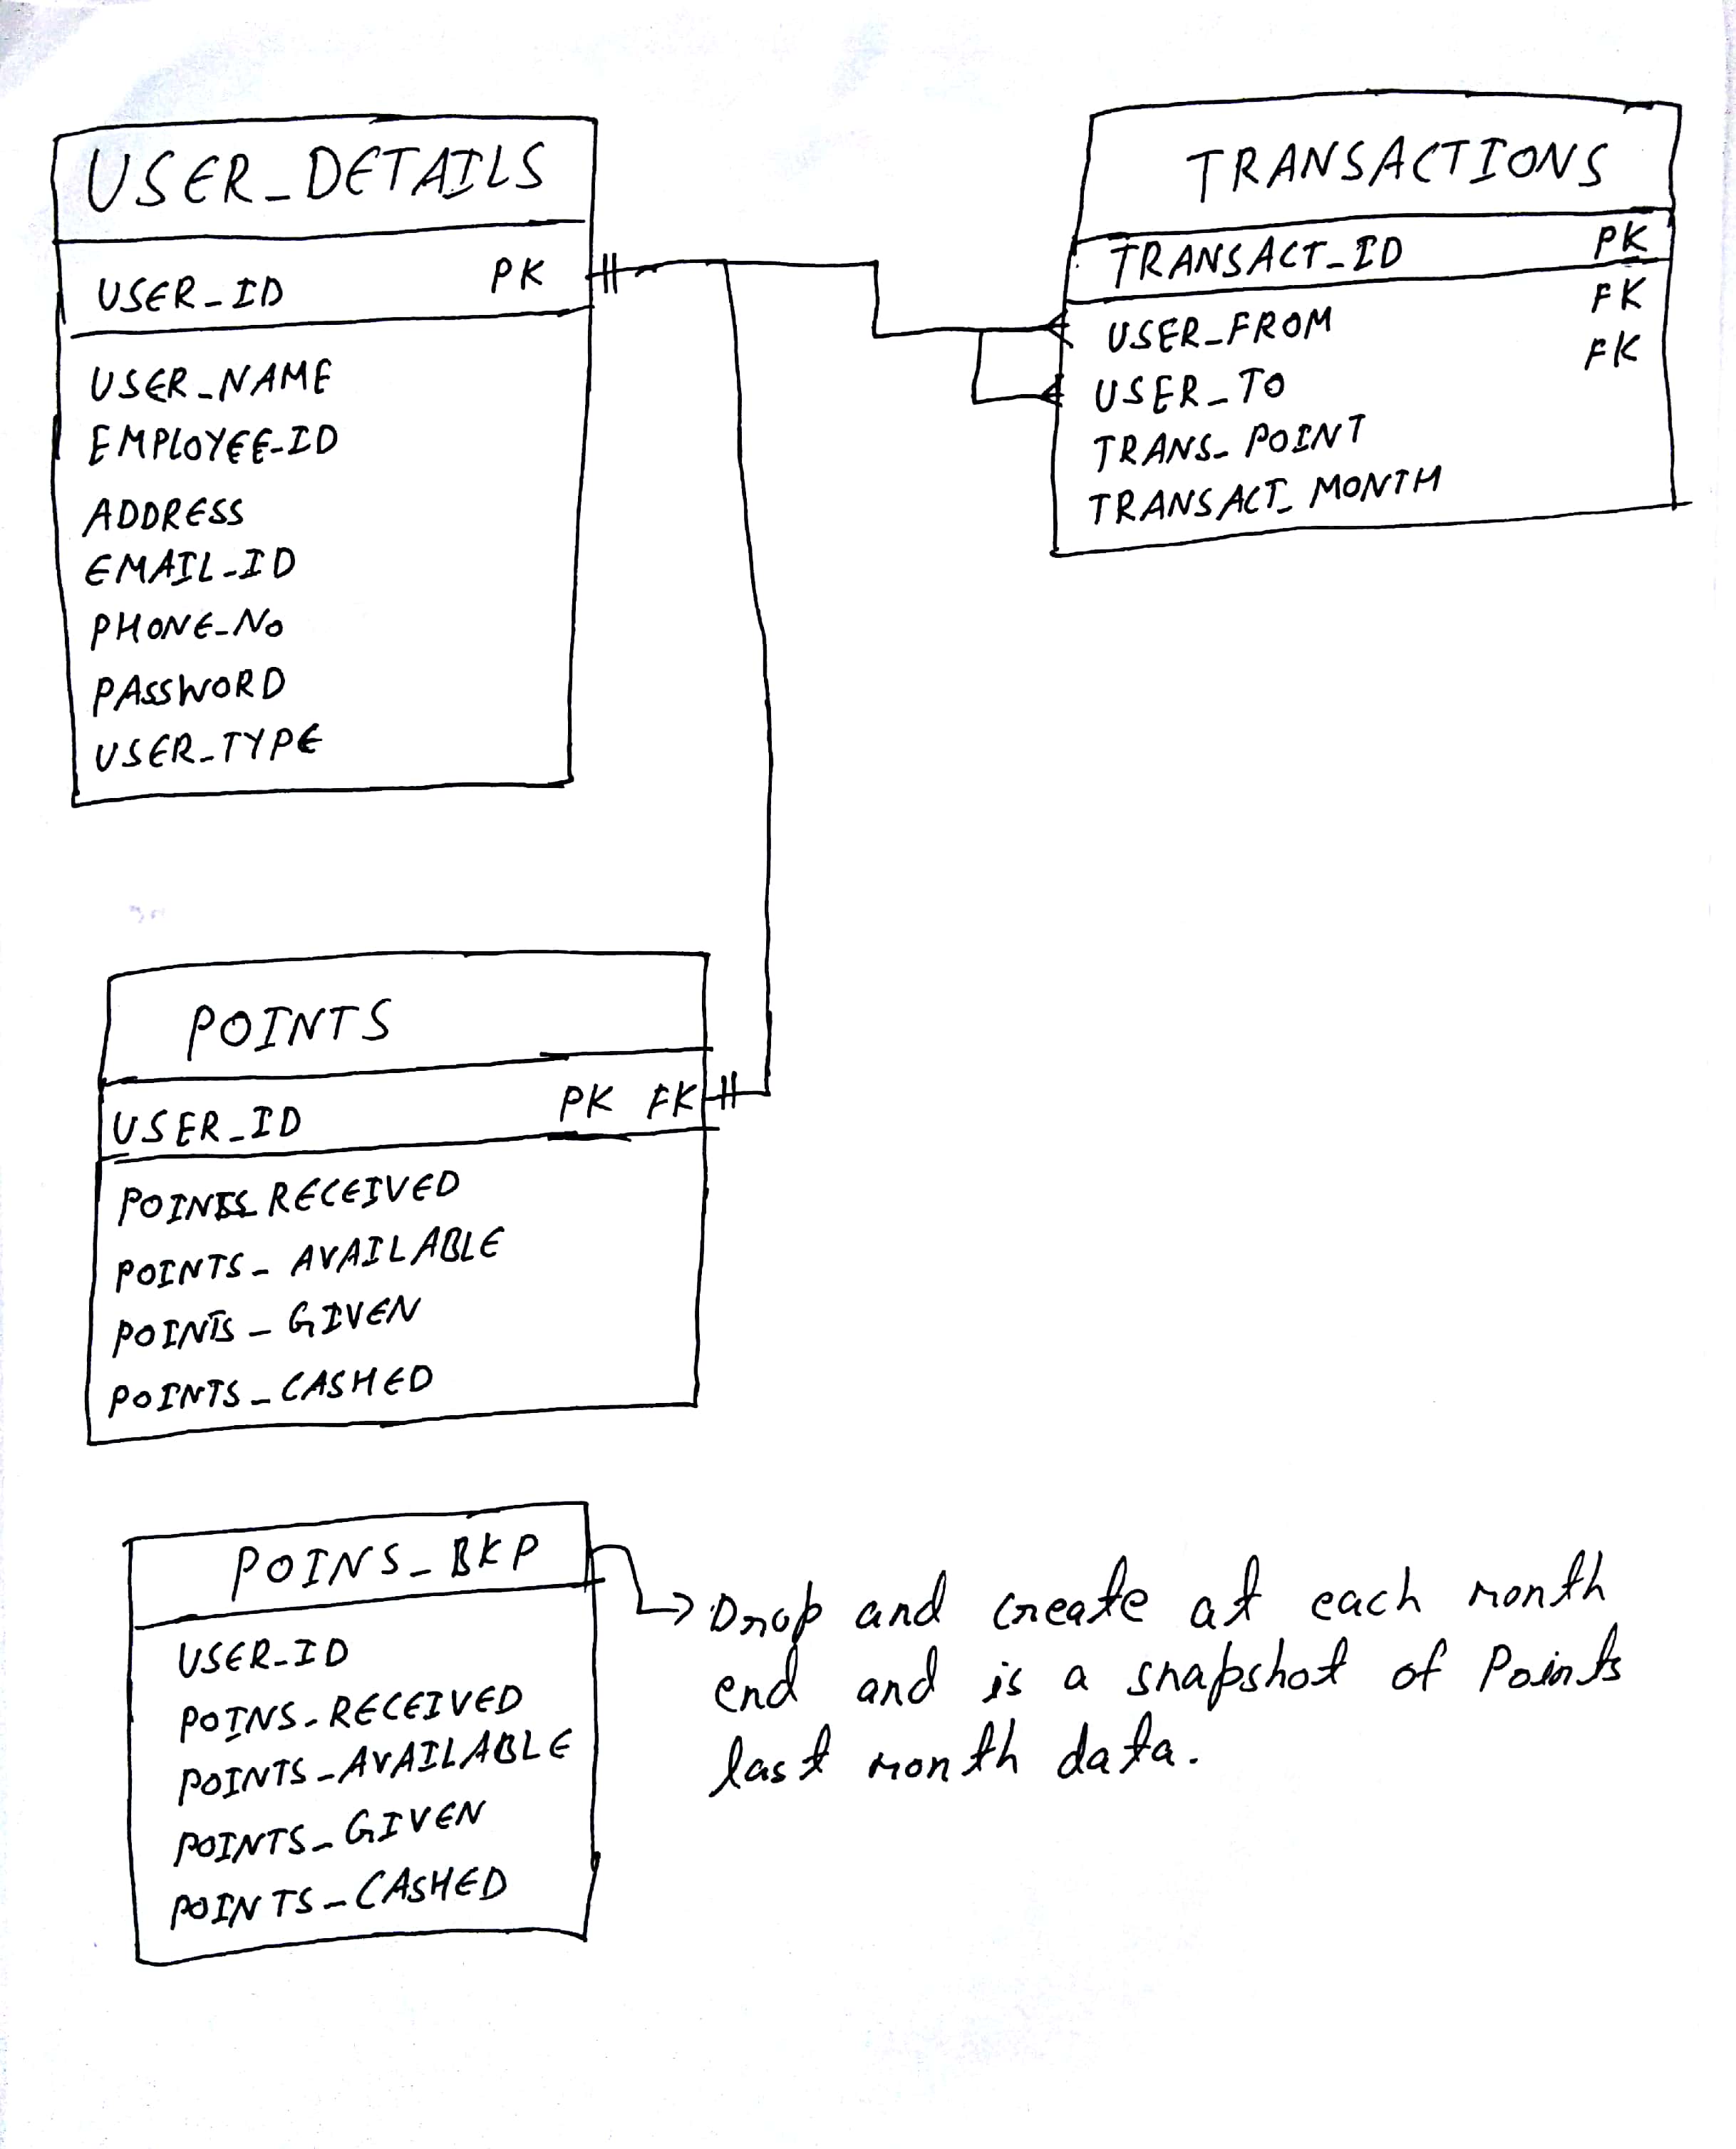 USER_DETAILS
USER_ID PK
USER_NAME
EMPLOYEE_ID
ADDRESS
EMAIL_ID
PHONE_NO
PASSWORD
USER_TYPE
TRANSACTIONS
TRANSACT_ID PK
USER_FROM FK
USER_TO FK
TRANS_POINT
TRANSACT_MONTH
POINTS
USER_ID PK FK
POINTS_RECEIVED
POINTS_AVAILABLE
POINTS_GIVEN
POINTS_CASHED
POINS_BKP
USER_ID
POINS_RECEIVED
POINTS_AVAILABLE
POINTS_GIVEN
POINTS_CASHED
Drop and create at each month
end and is a snapshot of Points
last month data.